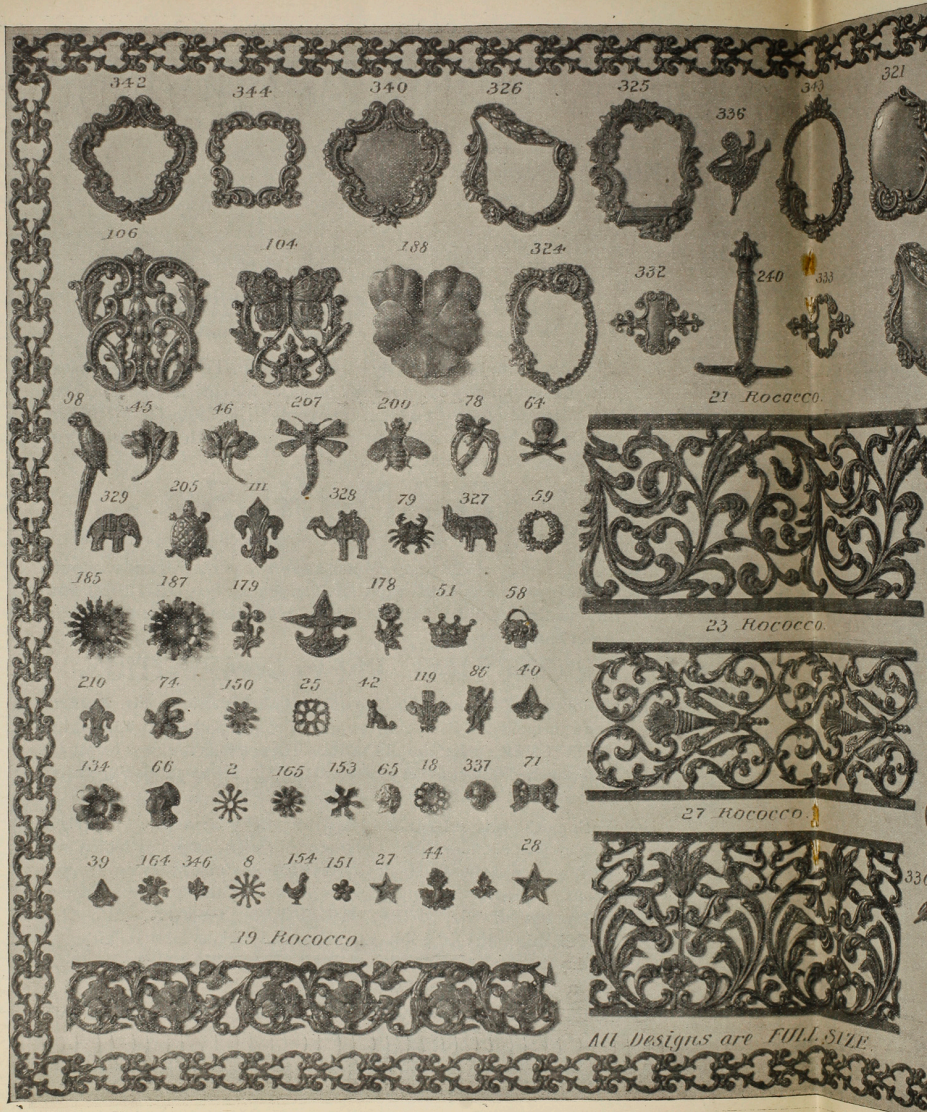 342 344 340 326 325 336 343 321
106 104 188 324 332 240 333
21 Rococo.
98 45 46 207 200 78 64
329 205 111 328 79 327 59
185 187 179 178 51 58
23 Rococco.
210 74 150 25 42 119 86 40
134 66 2 165 153 65 18 337 71
27 Rococco.
39 164 346 8 154 151 27 44 28
19 Rococco.
All Designs are FULL SIZE.